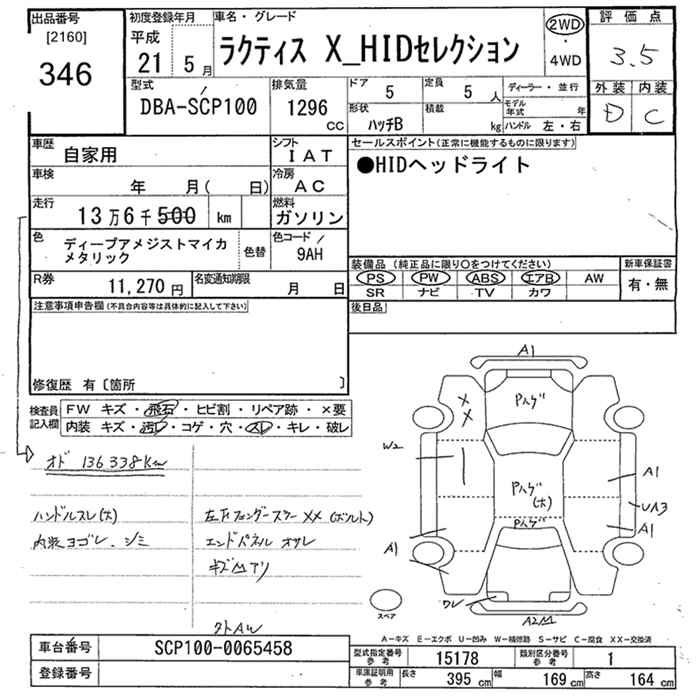 出品番号
[2160]
346
初度登録年月
平成
21 5月
車名・グレード
ラクティス X_HIDセレクション
2WD
・
4WD
評価点
3.5
外装 内装
D C
型式
DBA-SCP100
排気量
1296
cc
ドア
5
定員
5 人
形状
ハッチB
積載
kg
ディーラー・並行
モデル年式 年
ハンドル 左・右
車歴
自家用
シフト
IAT
車検
年 月( 日)
冷房
AC
走行
13万6千500 km
燃料
ガソリン
色
ディープアメジストマイカ
メタリック
色替
色コード
9AH
R券
11,270円
名変通知期限
月 日
セールスポイント(正常に機能するものに限ります)
●HIDヘッドライト
装備品(純正品に限り○をつけてください)
PS PW ABS エアB AW
SR ナビ TV カワ
新車保証書
有・無
後日品
注意事項申告欄(不具合内容等は具体的に記入して下さい)
修復歴 有〔箇所 〕
検査員
記入欄
FW キズ・飛石・ヒビ割・リペア跡・×要
内装 キズ・汚レ・コゲ・穴・スレ・キレ・破レ
オド 136338Km
ハンドルスレ(大)
内装ヨゴレ、シミ
左右フェンダーステー XX(ボルト)
エンドパネル オサレ
キズ凹アリ
A1
Pハゲ
W2
Pハゲ
(大)
Pハゲ
A1
UA3
A1
A1
ワレ
A2凹
スペア
A-キズ E-エクボ U-凹み W-補修跡 S-サビ C-腐食 XX-交換済
車台番号
SCP100-0065458
登録番号
型式指定番号
参考
15178
類別区分番号
参考
1
車庫証明用
参考
長さ 395 cm
幅 169 cm
高さ 164 cm